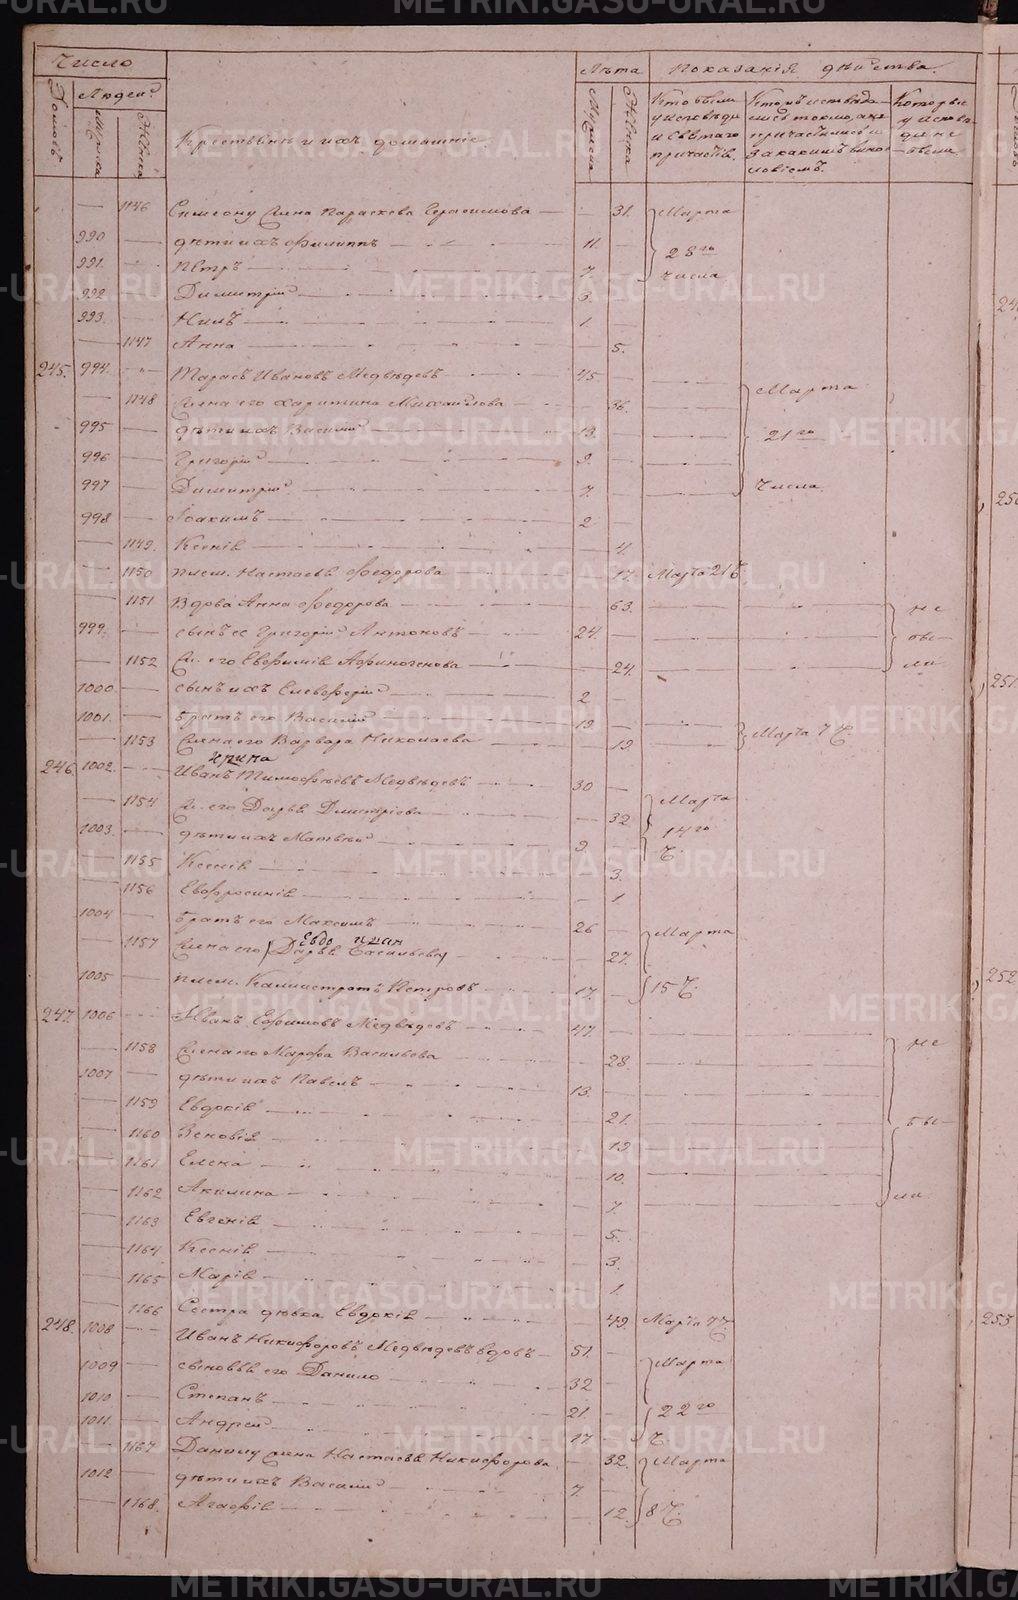 Число
Лѣта Показанія дѣйства.
Домовъ Людей
Мужска Женска
Крестьяне и ихъ домашніе.
Мужска Женска
Кто были у исповѣди и святаго причастія.
Которы у исповѣди не были.
1146 Симеону жена Параскева Герасимова 31. Марта
990 дѣти ихъ Филиппъ 11. 28го
991. Петръ 7. числа
992 Димитрій 3.
993. Нилъ 1.
1147 Анна 5.
245. 994. Тарасъ Ивановъ Медвѣдевъ 45
1148 Жена его Харитина Михайлова 36. Марта
995 дѣти ихъ Василій 13. 21го
996 Григорій 9.
997 Димитрій 7. числа
998 Іоакимъ 2
1149. Ксенія 4.
1150 плем. Настасья Федорова 17. Марта 21 Ч.
1151 Вдова Анна Федорова 63. не
999. сынъ ее Григорій Антоновъ 24. бы
1152 Ж. его Евфимія Афиногенова 24. ли
1000. сынъ ихъ Елевферій 2
1001. братъ его Василій 19
1153 Жена его Варвара Николаева 19. Марта 7 Ч.
246. 1002. Иванъ Тимофѣевъ Медвѣдевъ 30
1154 Ж. его Дарья Дмитріева 32 Марта
1003. дѣти ихъ Матвѣй 9. 14го
1155 Ксенія 3. Ч.
1156 Евфросинія 1
1004 братъ его Максимъ 26 Марта
Евдо
1157 Жена его Дарья Васильева 27.
1005 плем. Калистратъ Петровъ 17. 15 Ч.
247. 1006 Иванъ Ефимовъ Медвѣдевъ 47.
1158 Жена его Марфа Васильева 28 не
1007 дѣти ихъ Павелъ 13.
1159 Евдокія 21. бы
1160 Зеновія 19
1161 Елена 10.
1162 Акилина 7. ли
1163 Евгенія 5.
1164 Ксенія 3.
1165 Марія 1.
1166 Сестра дѣвка Евдокія 49. Марта 7 Ч.
248. 1008 Иванъ Никифоровъ Медвѣдевъ вдовъ 51.
1009 сыновья его Данило 32 Марта
1010 Степанъ 21. 22го
1011. Андрей 17 Ч.
1167 Данилу жена Настасья Никифорова 32. Марта
1012 дѣти ихъ Василій 7.
1168. Агафія 12. 8 Ч.
250
251.
252
253
METRIKI.GASO-URAL.RU